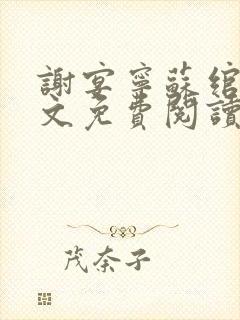 謝宴寧蘇綰
文免費閱讀
茂奈子